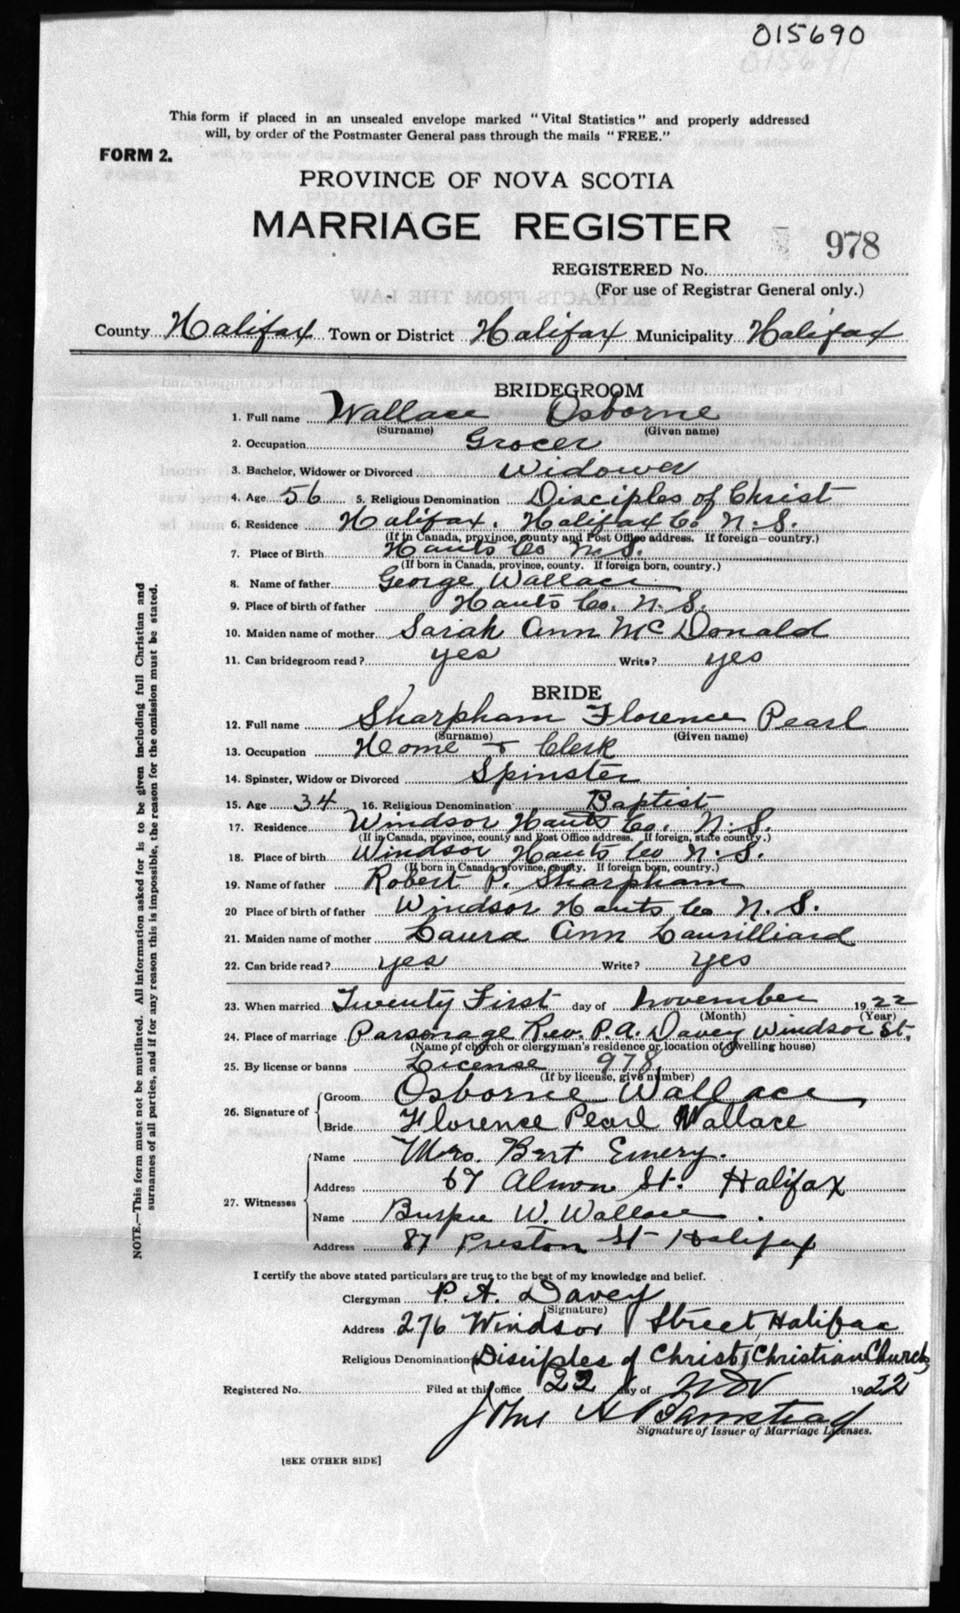 015690
This form if placed in an unsealed envelope marked "Vital Statistics" and properly addressed
will, by order of the Postmaster General pass through the mails "FREE."
FORM 2.
PROVINCE OF NOVA SCOTIA
MARRIAGE REGISTER
978
REGISTERED No.
(For use of Registrar General only.)
County Halifax Town or District Halifax Municipality Halifax
BRIDEGROOM
1. Full name Wallace Osborne
(Surname) (Given name)
2. Occupation Grocer
3. Bachelor, Widower or Divorced Widower
4. Age 56 5. Religious Denomination Disciples of Christ
6. Residence Halifax, Halifax Co N.S.
(If in Canada, province, county and Post Office address. If foreign—country.)
7. Place of Birth Hants Co N.S.
(If born in Canada, province, county. If foreign born, country.)
8. Name of father George Wallace
9. Place of birth of father Hants Co. N.S.
10. Maiden name of mother Sarah Ann McDonald
11. Can bridegroom read? yes Write? yes
BRIDE
12. Full name Sharpham Florence Pearl
(Surname) (Given name)
13. Occupation Home + Clerk
14. Spinster, Widow or Divorced Spinster
15. Age 34 16. Religious Denomination Baptist
17. Residence Windsor Hants Co. N.S.
(If in Canada, province, county and Post Office address. If foreign, state country.)
18. Place of birth Windsor Hants Co N.S.
(If born in Canada, province, county. If foreign born, country.)
19. Name of father Robert P. Sharpham
20 Place of birth of father Windsor Hants Co N.S.
21. Maiden name of mother Laura Ann Laurilliard
22. Can bride read? yes Write? yes
23. When married Twenty First day of November 1922
(Month) (Year)
24. Place of marriage Parsonage Rev. P.A. Davey Windsor St.
(Name of church or clergyman's residence or location of dwelling house)
25. By license or banns License 978
(If by license, give number)
26. Signature of Groom Osborne Wallace
Bride Florence Pearl Wallace
27. Witnesses Name Mrs. Bert Emery.
Address 67 Almon St. Halifax
Name Burpee W. Wallace
Address 87 Preston St Halifax
I certify the above stated particulars are true to the best of my knowledge and belief.
Clergyman P. A. Davey
(Signature)
Address 276 Windsor Street, Halifax
Religious Denomination Disciples of Christ, Christian Church
Registered No. Filed at this office 22 day of Nov 1922
John A Barnstead
Signature of Issuer of Marriage Licenses.
[SEE OTHER SIDE]
NOTE.—This form must not be mutilated. All information asked for is to be given including full Christian and
surnames of all parties, and if for any reason this is impossible, the reason for the omission must be stated.